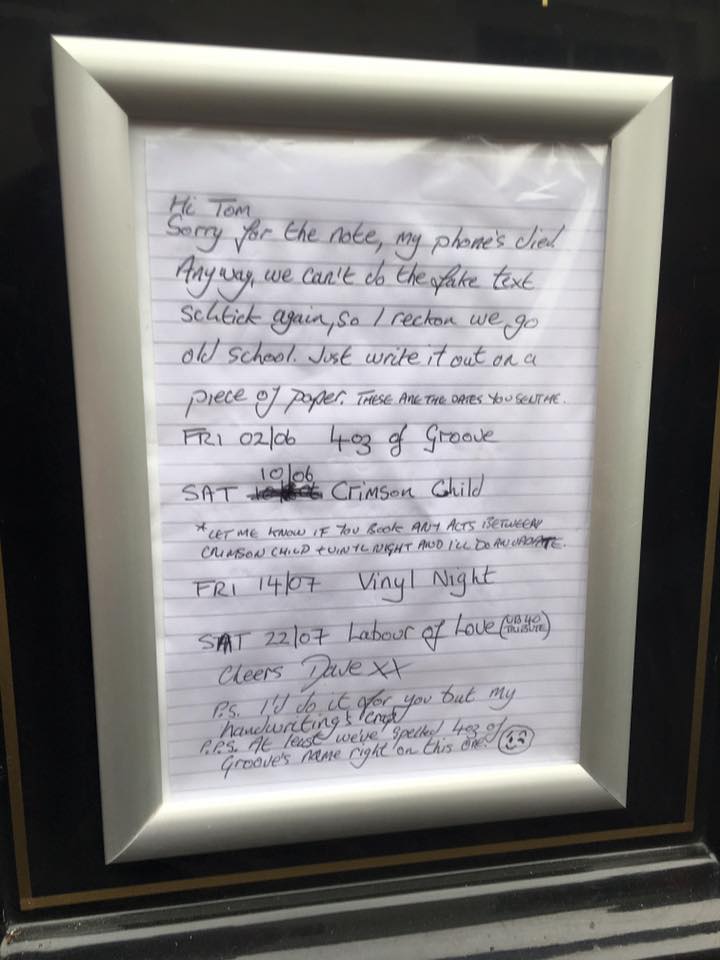 Hi Tom
Sorry for the note, my phone's died
Anyway, we can't do the fake text
schtick again, so I reckon we go
old school. Just write it out on a
piece of paper. THESE ARE THE DATES YOU SENT ME.
FRI 02/06 4oz of Groove
10/06
SAT Crimson Child
*LET ME KNOW IF YOU BOOK ANY ACTS BETWEEN
CRIMSON CHILD + VINYL NIGHT AND I'LL DO AN UPDATE.
FRI 14/07 Vinyl Night
SAT 22/07 Labour of Love (UB40 TRIBUTE)
Cheers Dave XX
P.S. I'd do it for you but my
handwriting's crap
P.P.S. At least we've spelled 4oz of
Groove's name right on this one.